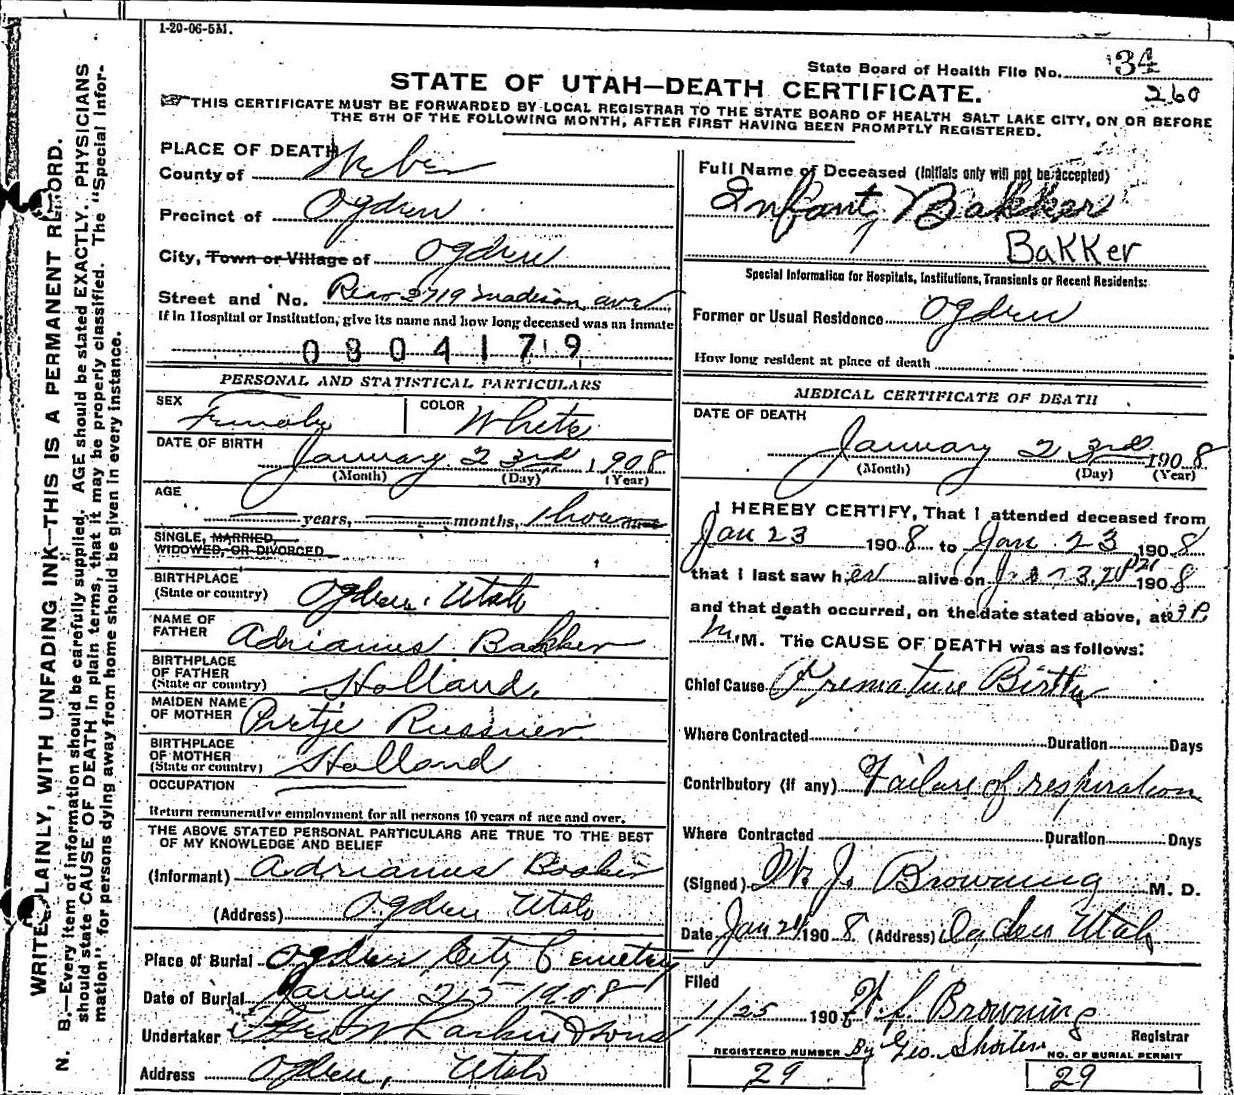 1-20-06-5M.
State Board of Health File No. 34
260
STATE OF UTAH—DEATH CERTIFICATE.
THIS CERTIFICATE MUST BE FORWARDED BY LOCAL REGISTRAR TO THE STATE BOARD OF HEALTH SALT LAKE CITY, ON OR BEFORE
THE 5TH OF THE FOLLOWING MONTH, AFTER FIRST HAVING BEEN PROMPTLY REGISTERED.
WRITE PLAINLY, WITH UNFADING INK—THIS IS A PERMANENT RECORD.
N. B.—Every item of information should be carefully supplied. AGE should be stated EXACTLY. PHYSICIANS
should state CAUSE OF DEATH in plain terms, that it may be properly classified. The "Special Infor-
mation" for persons dying away from home should be given in every instance.
PLACE OF DEATH
County of Weber
Precinct of Ogden
City, Town or Village of Ogden
Street and No. Rear 2719 Madison ave
If in Hospital or Institution, give its name and how long deceased was an inmate
0804179
PERSONAL AND STATISTICAL PARTICULARS
SEX Female COLOR White
DATE OF BIRTH January 23rd 1908
(Month) (Day) (Year)
AGE years, months, 1 hour
SINGLE, MARRIED,
WIDOWED, OR DIVORCED
BIRTHPLACE
(State or country) Ogden, Utah
NAME OF
FATHER Adrianus Bakker
BIRTHPLACE
OF FATHER
(State or country) Holland,
MAIDEN NAME
OF MOTHER
BIRTHPLACE
OF MOTHER
(State or country) Holland
OCCUPATION
Return remunerative employment for all persons 10 years of age and over.
THE ABOVE STATED PERSONAL PARTICULARS ARE TRUE TO THE BEST
OF MY KNOWLEDGE AND BELIEF
(Informant) Adrianus
(Address) Ogden Utah
Place of Burial Ogden City Cemetery
Date of Burial Janry 25 1908
Undertaker Larkin & Sons
Address Ogden, Utah
Full Name of Deceased (Initials only will not be accepted)
Infant Bakker
Bakker
Special Information for Hospitals, Institutions, Transients or Recent Residents:
Former or Usual Residence Ogden
How long resident at place of death
MEDICAL CERTIFICATE OF DEATH
DATE OF DEATH
January 23rd 1908
(Month) (Day) (Year)
I HEREBY CERTIFY, That I attended deceased from
Jan 23 1908 to Jan. 23 1908
that I last saw her alive on 1908
and that death occurred, on the date stated above, at 3 P.
M. The CAUSE OF DEATH was as follows:
Chief Cause Premature Birth
Where Contracted Duration Days
Contributory (if any) Failure of respiration
Where Contracted Duration Days
(Signed) W. J. Browning M. D.
Date Jan 24 1908 (Address) Ogden Utah
Filed
1/25 1908 Browning
Registrar
By Geo. Shorten
REGISTERED NUMBER NO. OF BURIAL PERMIT
29 29